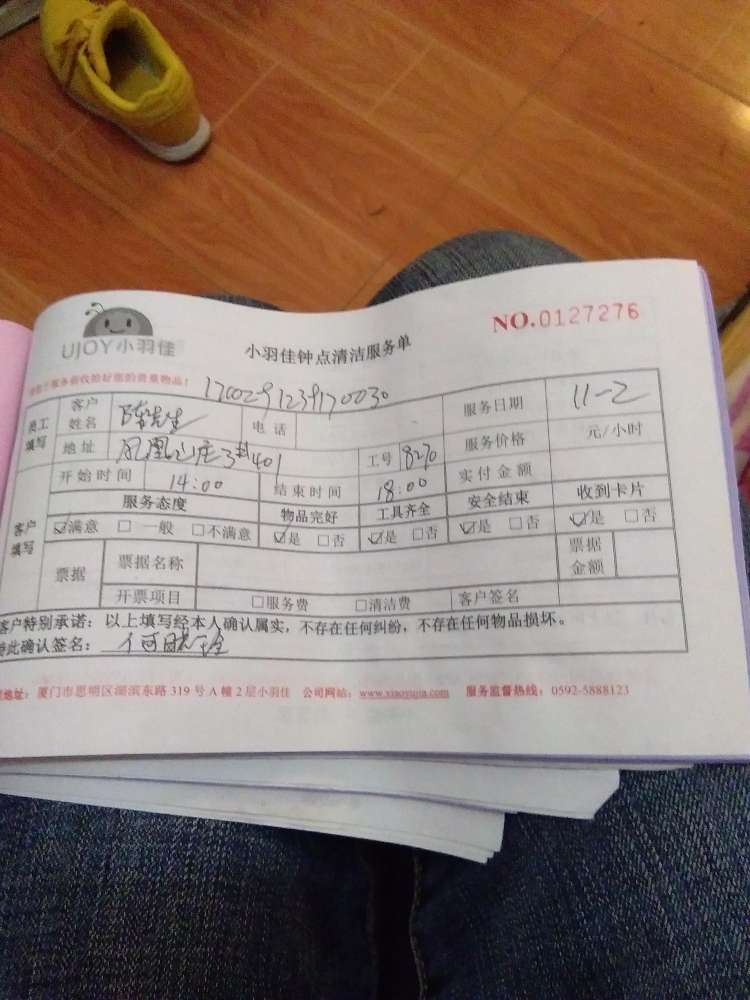 UJOY小羽佳
小羽佳钟点清洁服务单
NO.0127276
1700291239170030
员工填写 客户姓名 陈先生 电话 服务日期 11-2
地址 凤凰山庄3#401 工号 8270 服务价格 元/小时
开始时间 14:00 结束时间 18:00 实付金额
客户填写 服务态度 物品完好 工具齐全 安全结束 收到卡片
☑满意 □一般 □不满意 ☑是 □否 ☑是 □否 ☑是 □否 ☑是 □否
票据 票据名称 票据金额
开票项目 □服务费 □清洁费 客户签名
客户特别承诺:以上填写经本人确认属实,不存在任何纠纷,不存在任何物品损坏。
此确认签名:
地址:厦门市思明区湖滨东路319号A幢2层小羽佳 公司网站:www.xiaoyujia.com 服务监督热线:0592-5888123